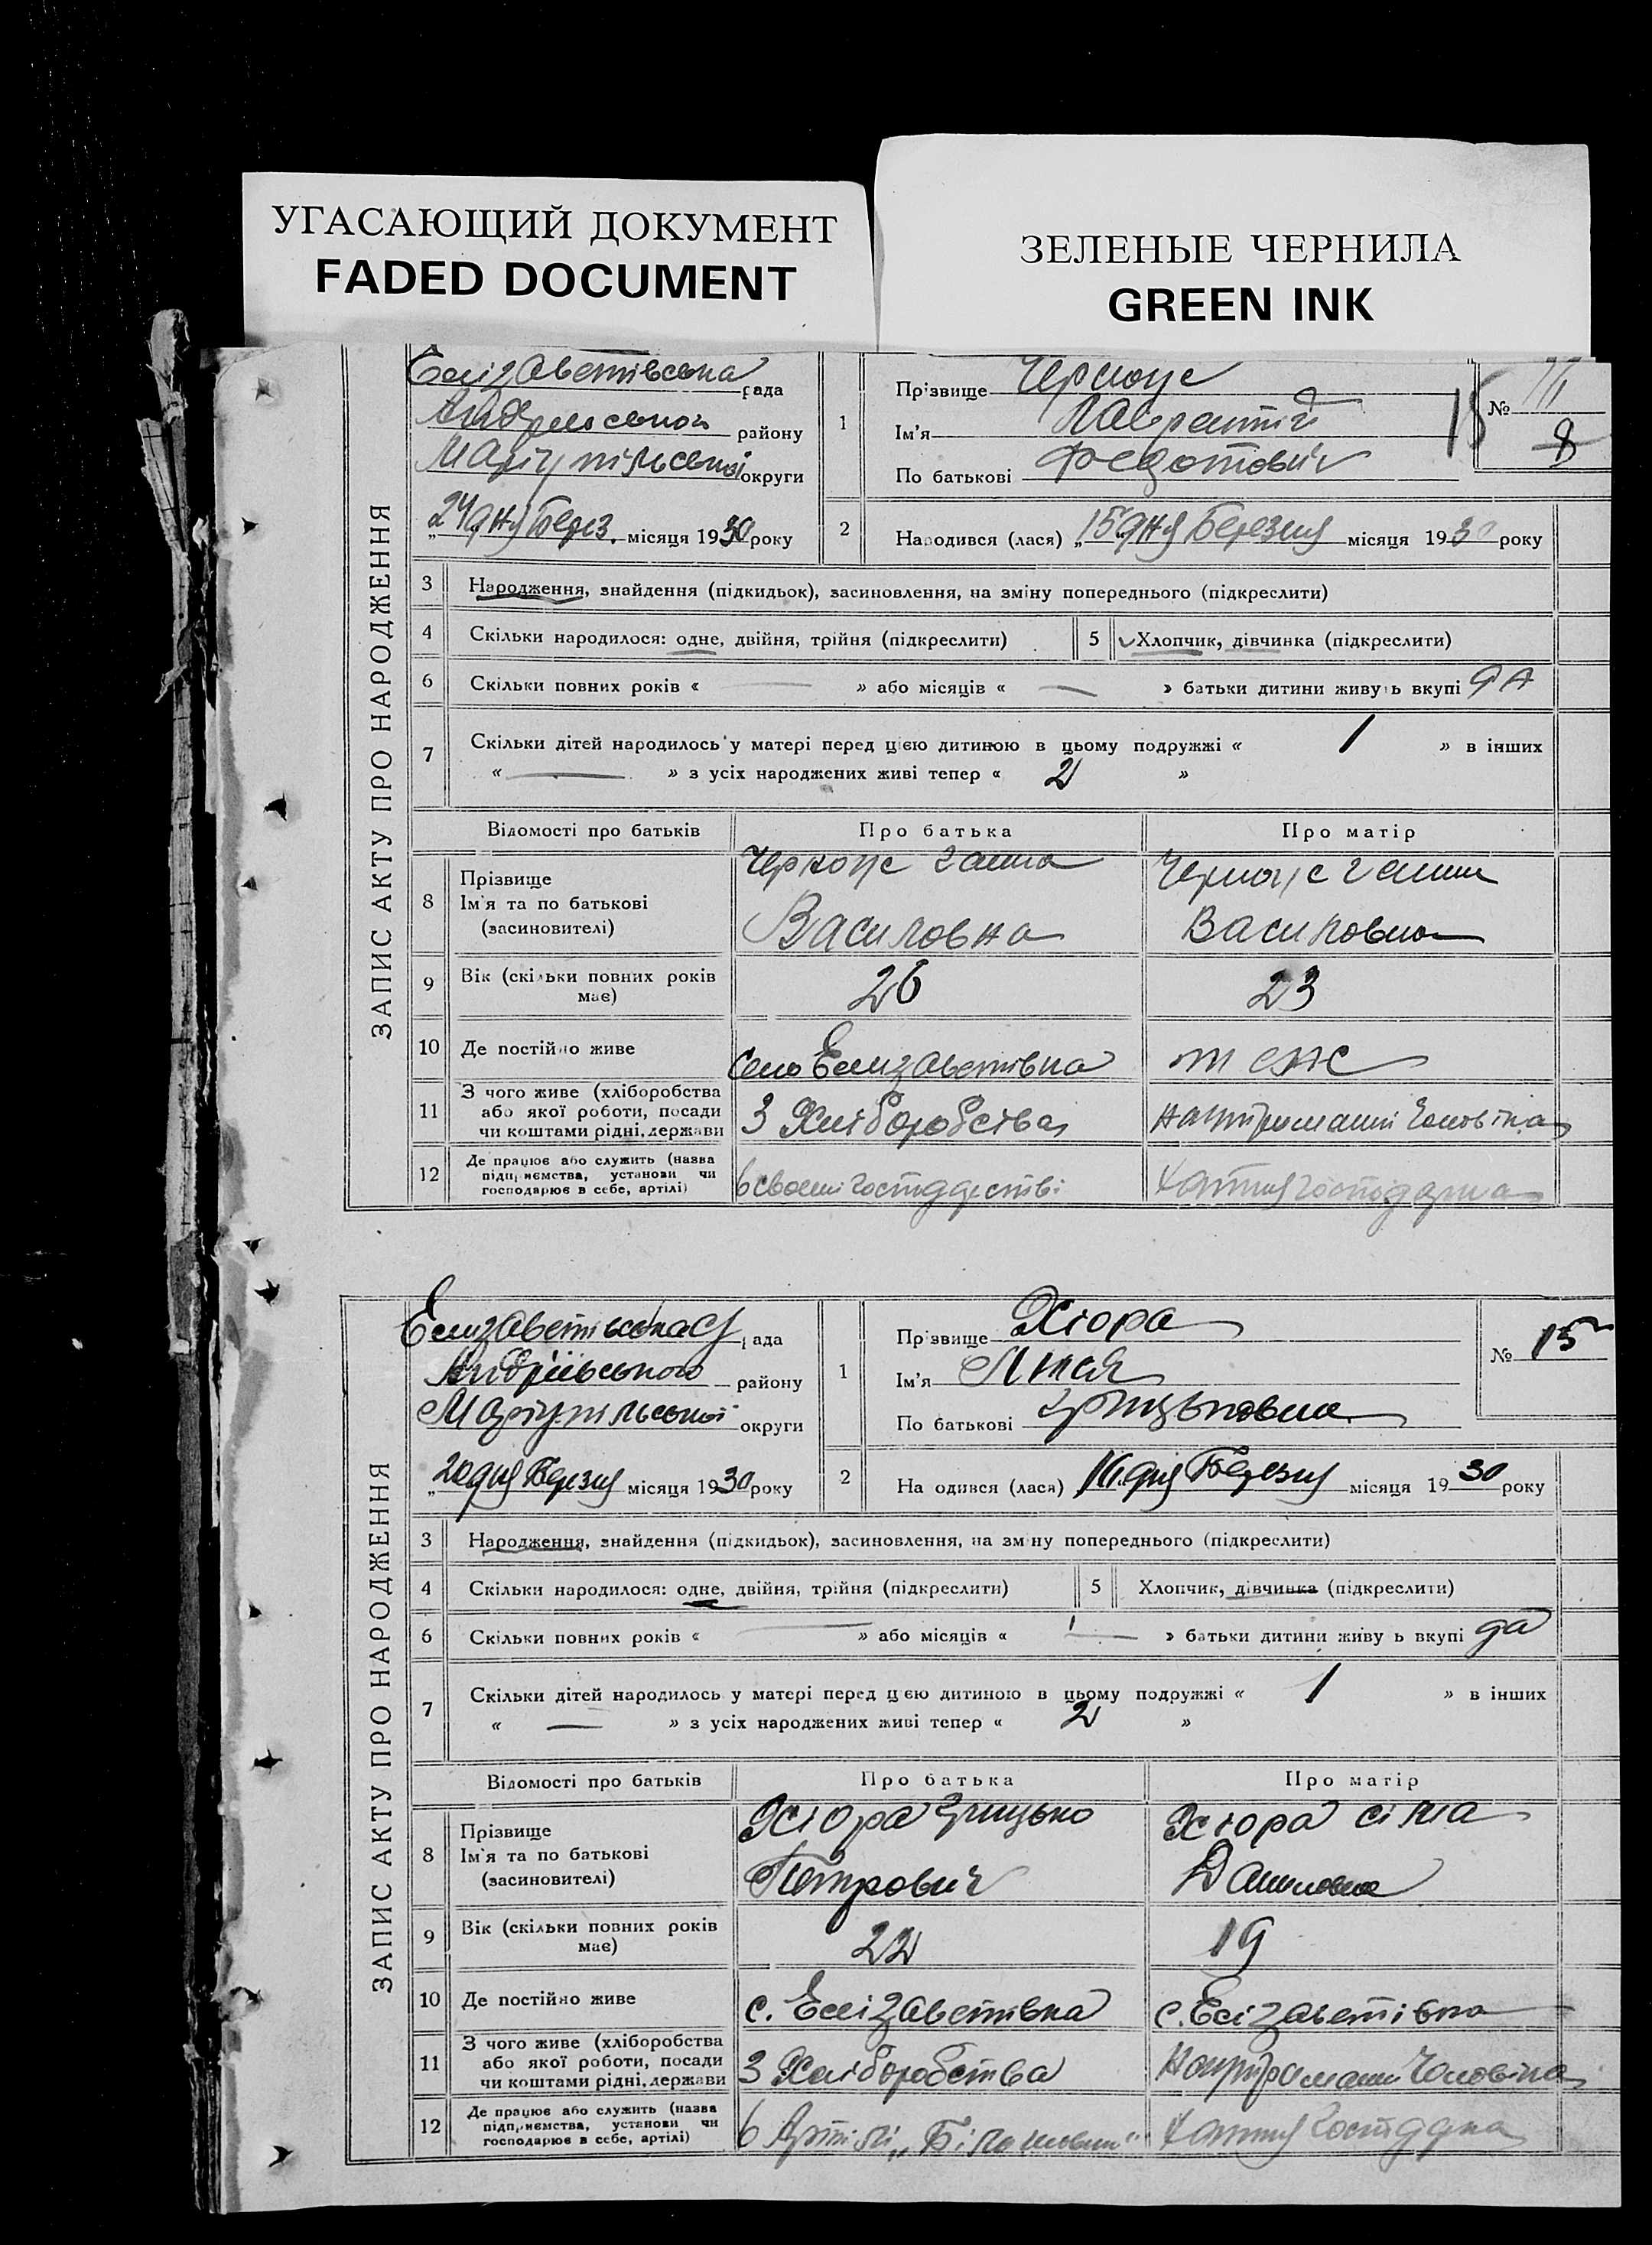 УГАСАЮЩИЙ ДОКУМЕНТ
FADED DOCUMENT
ЗЕЛЕНЫЕ ЧЕРНИЛА
GREEN INK
ЗАПИС АКТУ ПРО НАРОДЖЕННЯ
Єлізаветівська рада
району
Маріупільської округи
24 дня Берез. місяця 1930 року
1 Прізвище Черноус
Ім'я Лаврентій
По батькові Федотович
№
8
2 Народився (лася) „15 дня Березня місяця 1930 року
3 Народження, знайдення (підкидьок), засиновлення, на зміну попереднього (підкреслити)
4 Скільки народилося: одне, двійня, трійня (підкреслити) 5 Хлопчик, дівчинка (підкреслити)
6 Скільки повних років « — » або місяців « — » батьки дитини живуть вкупі ДА
7 Скільки дітей народилось у матері перед цією дитиною в цьому подружжі « 1 » в інших
« — » з усіх народжених живі тепер « 2 »
Відомості про батьків Про батька Про матір
8 Прізвище
Ім'я та по батькові
(засиновителі)
Черноус Ганна
Василовна
Черноус Ганна
Василовна
9 Вік (скільки повних років
має) 26 23
10 Де постійно живе Село Єлизаветівка теж
11 З чого живе (хліборобства
або якої роботи, посади
чи коштами рідні, держави
З Хліборобства
на утриманні Чоловіка
12 Де працює або служить (назва
підприємства, установи чи
господарює в себе, артілі)
в своєму господарстві
Хатня господарка
ЗАПИС АКТУ ПРО НАРОДЖЕННЯ
рада
Андріївського району
Маріупільської округи
„20 дня Березня місяця 1930 року
1 Прізвище Хіора
Ім'я
По батькові Грицьковна
№ 15
2 Народився (лася) 16 дня Березня місяця 1930 року
3 Народження, знайдення (підкидьок), засиновлення, на зміну попереднього (підкреслити)
4 Скільки народилося: одне, двійня, трійня (підкреслити) 5 Хлопчик, дівчинка (підкреслити)
6 Скільки повних років « — » або місяців « — » батьки дитини живуть вкупі да
7 Скільки дітей народилось у матері перед цією дитиною в цьому подружжі « 1 » в інших
« — » з усіх народжених живі тепер « 2 »
Відомості про батьків Про батька Про матір
8 Прізвище
Ім'я та по батькові
(засиновителі)
Хіора Грицько
Петрович
Хіора
Даниловна
9 Вік (скільки повних років
має) 22 19
10 Де постійно живе с. Єлізаветівка с. Єлізаветівка
11 З чого живе (хліборобства
або якої роботи, посади
чи коштами рідні, держави
З Хліборобства
На утриманні Чоловіка
12 Де працює або служить (назва
підприємства, установи чи
господарює в себе, артілі)
в Артілі
Хатня Господарка